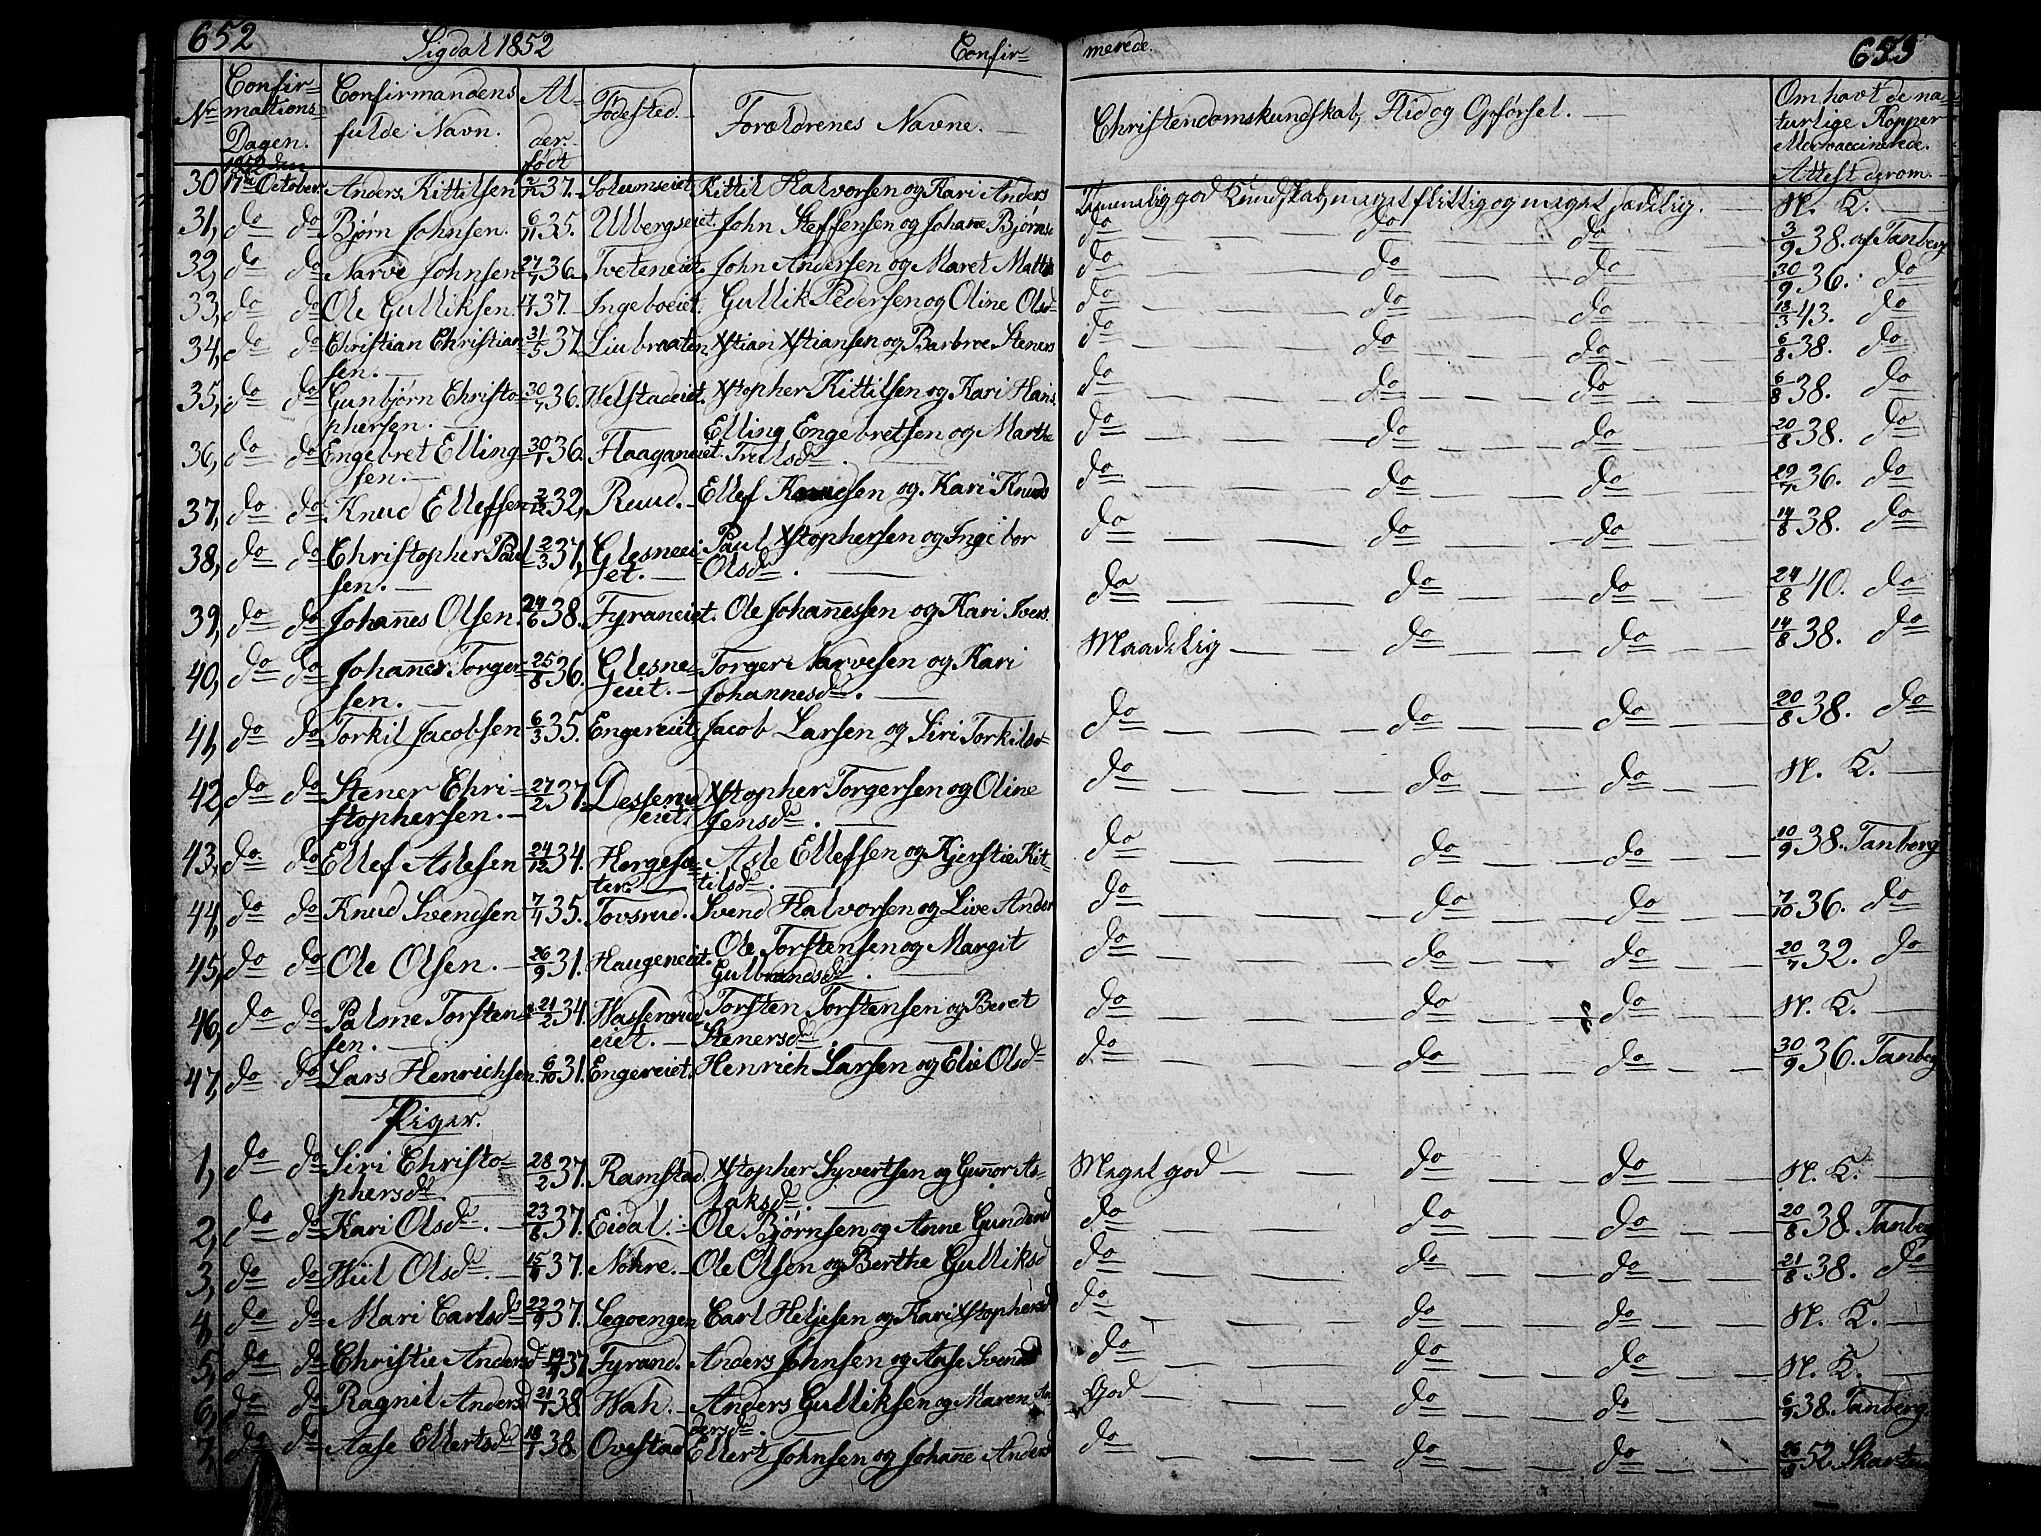 652 Sigdal 1852 Confir=
merede. 653
No Confir=mations Dagen. Confirmandens fulde Navn. Al=der. født Fødested. Forældrenes Navne.
Christendomskundskab, Flid og Opførsel. Om havt de na=turlige Kopper eller vaccinerede. Attest derom.
1852 den
30 17de October. Anders Kittilsen 37. Solumseiet Kittil Halvorsen og Kari Anders god Kundskab, meget flittig og meget sædelig. N. K.
31, do do Bjørn Johnsen. 6/11 35. Ulbergseiet. John Steffensen og Johane Bjørnsd do do do 3/9 38. af Tanberg
32, do do Narve Johnsen 27/7 36. Tveteneiet. John Andersen og Maret Mattis do do do 30/9 36. do
33, do do Ole Gulliksen. 37. Ingeboeiet. Gullik Pedersen og Oline Olsd do do do 13/3 43. do
34, do do Christian Christian=sen. 31/5 37. Liubraaten. Xstian Xstiansen og Barbroe Steners do do do 6/8 38. do
35, do do Gunbjørn Christo=phersen. 30/7 36. Helstadeiet. Xstopher Kittilsen og Kari Hans do do do 6/8 38. do
36, do do Engebret Elling=sen. 30/1 36. Haaganeiet. Elling Engebretsen og Marthe Trulsd do do do 20/8 38. do
37, do do Knud Ellefsen 32, Ruud. Ellef Knudsen og Kari Knuds do do do 29/7 36. do
38, do do Christopher Paul=sen. 2/3 37, Glesneei=et. Paul Xstophersen og Ingebor Olsd. do do do 14/8 38. do
39, do do Johannes Olsen. 24/6 38. Fyraneiet. Ole Johannessen og Kari Ivers do do do 24/8 40. do
40, do do Johannes Torger=sen. 25/8 36. Glesne=eiet. Torger Narvesen og Kari Johannesd. Maadelig do do 14/8 38. do
41, do do Torkil Jacobsen 6/3 35. Engereiet Jacob Larsen og Siri Torkilsd do do do 20/8 38. do
42, do do Stener Chri=stophersen. 27/2 37. Desserud eiet Xstopher Torgersen og Oline Jensd. do do do N. K.
43, do do Ellef Aslesen 24/12 34. Horgesæ=ter. Asle Ellefsen og Kjerstie Kit=tilsd. do do do 10/9 38. Tanberg
44, do do Knud Svendsen 7/4 35. Tovsrud. Svend Halvorsen og Live Ander do do do 7/10 36. do
45, do do Ole Olsen. 26/9 31. Haugeneiet. Ole Torstensen og Margit Gulbrandsd. do do do 20/7 32. do
46, do do Palme Torsten=sen. 21/2 34. Hassenrud eiet. Torsten Torstensen og Beret Stenersd. do do do N. K.
47, do do Lars Henrichsen. 6/10 31. Engereiet. Henrich Larsen og Elie Olsd do do do 30/9 36. Tanberg
Piger.
1, do do Siri Christo=phersd 28/2 37. Ramstad. Xstopher Syvertsen og Gunor As=laksd. Meget god do do N. K.
2, do do Kari Olsd. 23/8 37. Eidal. Ole Bjørnsen og Anne Gundersd do do do 20/8 38. Tanberg
3, do do Hiil Olsd. 37. Nøhre. Ole Olsen og Berthe Gulliksd do do do 21/8 38. do
4, do do Mari Carlsd 22/9 37. Segoengen Carl Heljesen og Kari Xstophersd do do do N. K.
5, do do Christie Andersd 37. Fyrand. Anders Johnsen og Aase Svendsd do do do N. K.
6, do do Ragnil Andersd 21/1 38. Hah. Anders Gulliksen og Maren An=dersd. God do do 6/9 38. Tanberg.
7, do do Aase Ellertsd 18/1 38. Ovestad Ellert Johnsen og Johanne Andersd do do do 52.